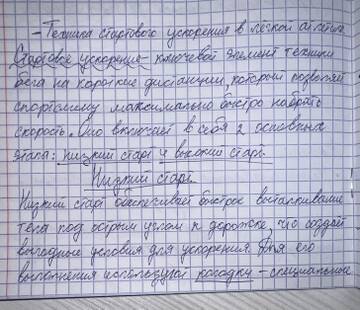 - Техника стартового ускорения в лёгкой атлетике
Стартовое ускорение - ключевой элемент техники
бега на короткие дистанции, который позволяет
спортсмену максимально быстро набрать
скорость. Оно включает в себя 2 основных
этапа: низкий старт и высокий старт.
Низкий старт
Низкий старт обеспечивает быстрое выталкивание
тела под острым углом к дорожке, что создаёт
выгодные условия для ускорения. Для его
выполнения используют колодку - специальное